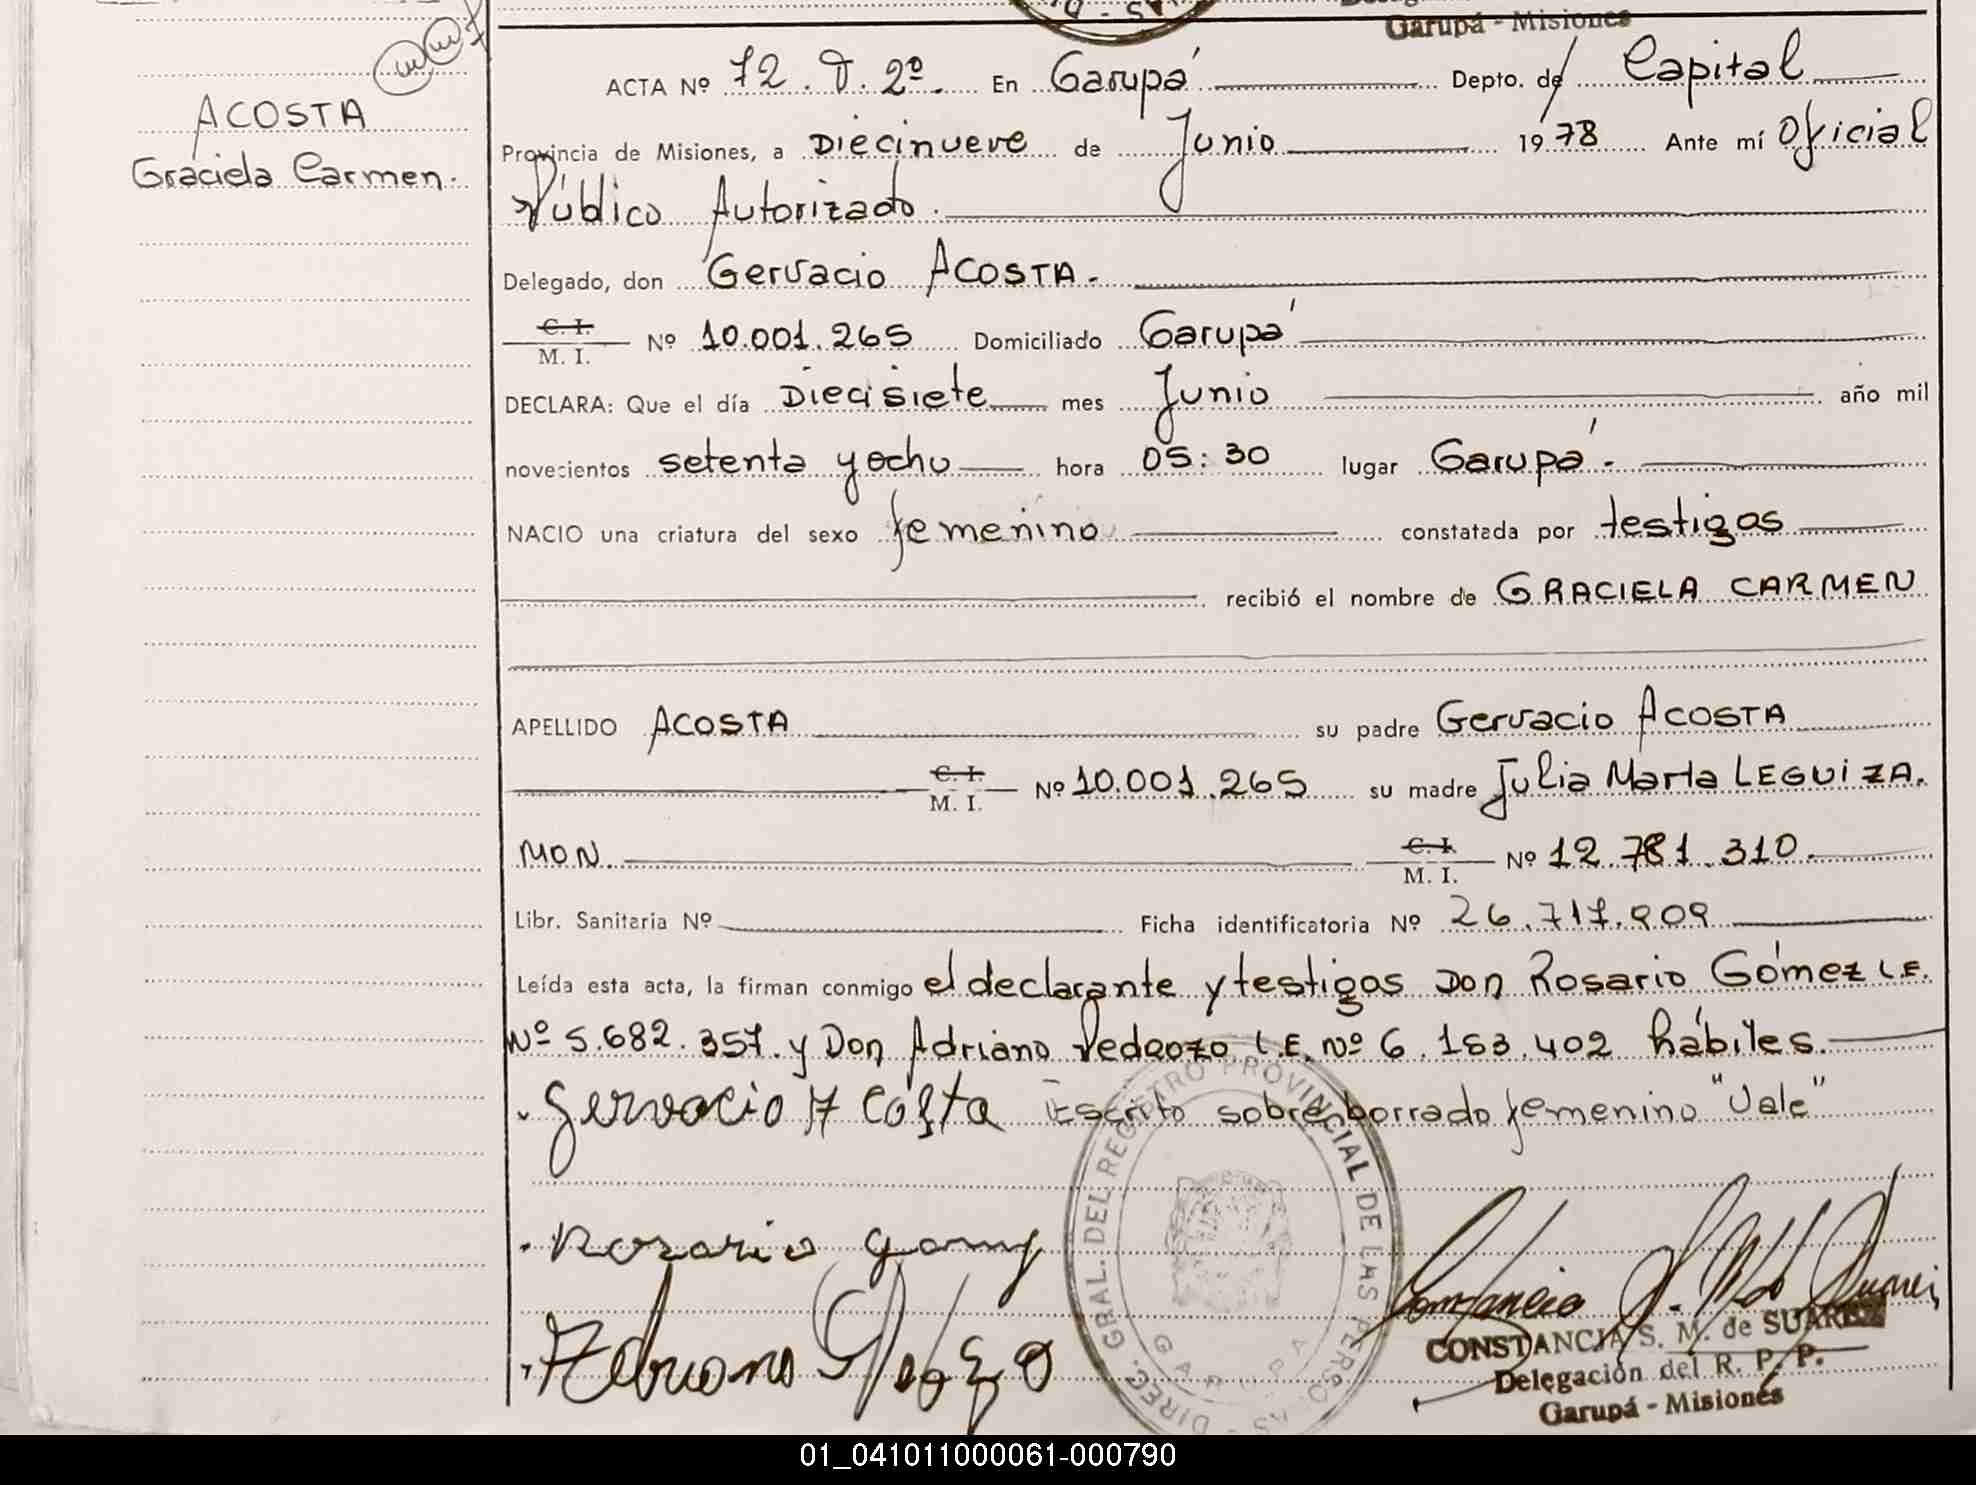 Garupá - Misiones
ACOSTA
Graciela Carmen.
ACTA Nº 72. T. 2º. En Garupá Depto. de Capital
Provincia de Misiones, a Diecinueve de Junio 1978 Ante mí Oficial
Público Autorizado.
Delegado, don Gervacio ACOSTA.
C. I.
M. I. Nº 10.001.265 Domiciliado Garupá
DECLARA: Que el día Diecisiete mes Junio año mil
novecientos setenta y ocho hora 05:30 lugar Garupá.
NACIO una criatura del sexo femenino constatada por testigos
recibió el nombre de GRACIELA CARMEN
APELLIDO ACOSTA su padre Gervacio ACOSTA
C. I.
M. I. Nº 10.001.265 su madre Julia Marta LEGUIZA.
MON. C. I.
M. I. Nº 12.781.310.
Libr. Sanitaria Nº Ficha identificatoria Nº 26.717.909
Leída esta acta, la firman conmigo el declarante y testigos Don Rosario Gómez L.E.
Nº 5.682.357. y Don Adriano Pedrozo L.E. Nº 6.153.402 hábiles.
Gervacio Acosta Escrito sobre borrado femenino "Vale"
Rosario Gomez
Adriano
DIREC. GRAL. DEL REGISTRO PROVINCIAL DE LAS PERSONAS
GARUPA
CONSTANCIA S. M. de SUAREZ
Delegación del R. P. P.
Garupá - Misiones
01_041011000061-000790